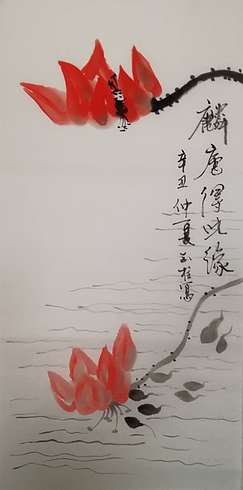 麟得此緣
辛丑仲夏桂寫